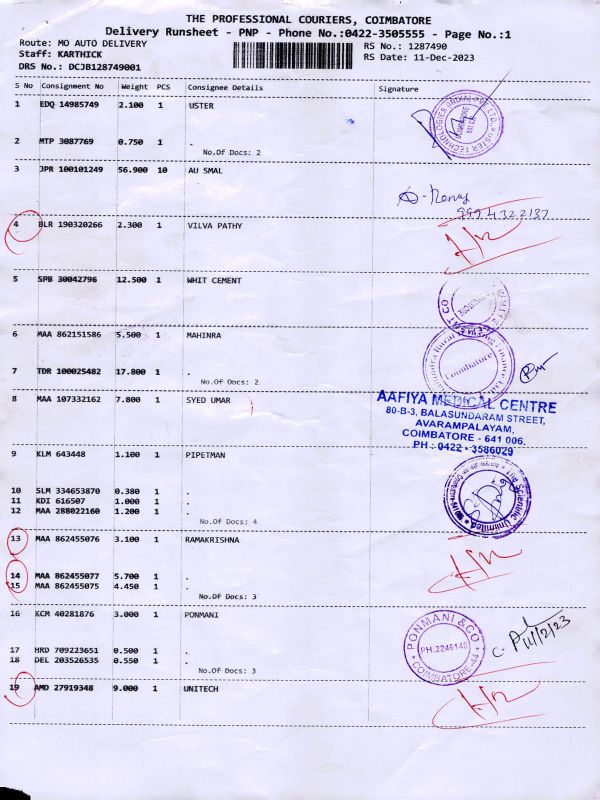 THE PROFESSIONAL COURIERS, COIMBATORE
Delivery Runsheet - PNP - Phone No.:0422-3505555 - Page No.:1
Route: MO AUTO DELIVERY RS No.: 1287490
Staff: KARTHICK RS Date: 11-Dec-2023
DRS No.: DCJB128749001
S No Consignment No Weight PCS Consignee Details Signature
1 EDQ 14985749 2.100 1 USTER
USTER TECHNOLOGIES
2 MTP 3087769 0.750 1 .
No.Of Docs: 2
3 JPR 100101249 56.900 10 AU SMAL
4 BLR 190320266 2.300 1 VILVA PATHY
5 SPB 30042796 12.500 1 WHIT CEMENT
6 MAA 862151586 5.500 1 MAHINRA
Coimbatore
7 TDR 100025482 17.800 1 .
No.Of Docs: 2
8 MAA 107332162 7.800 1 SYED UMAR
AAFIYA MEDICAL CENTRE
80-B-3, BALASUNDARAM STREET,
AVARAMPALAYAM,
COIMBATORE - 641 006.
PH : 0422 - 3586029
9 KLM 643448 1.100 1 PIPETMAN
10 SLM 334653870 0.380 1 .
11 KDI 616507 1.000 1 .
12 MAA 288022160 1.200 1 .
No.Of Docs: 4
13 MAA 862455076 3.100 1 RAMAKRISHNA
14 MAA 862455077 5.700 1 .
15 MAA 862455075 4.450 1 .
No.Of Docs: 3
16 KCM 40281876 3.000 1 PONMANI
PONMANI & CO
PH:2246140
COIMBATORE-44
11/12/23
17 HRD 709223651 0.500 1 .
18 DEL 203526535 0.550 1 .
No.Of Docs: 3
19 AMD 27919348 9.000 1 UNITECH